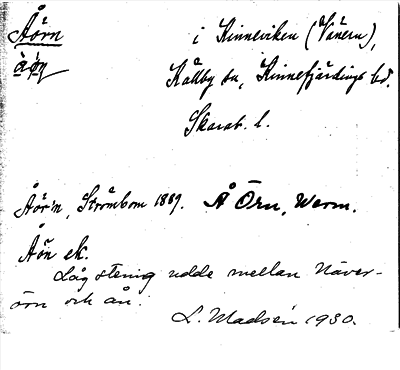 Åörn i Kinneviken (Vänern),
åøn Källby sn, Kinnefjärdings hd.
Skarab. l.
Åör'n, Strömbom 1889. Å Örn, Werm.
Åön ek.
Låg stenig udde mellan Näver-
örn och ån.
L. Madsén 1930.